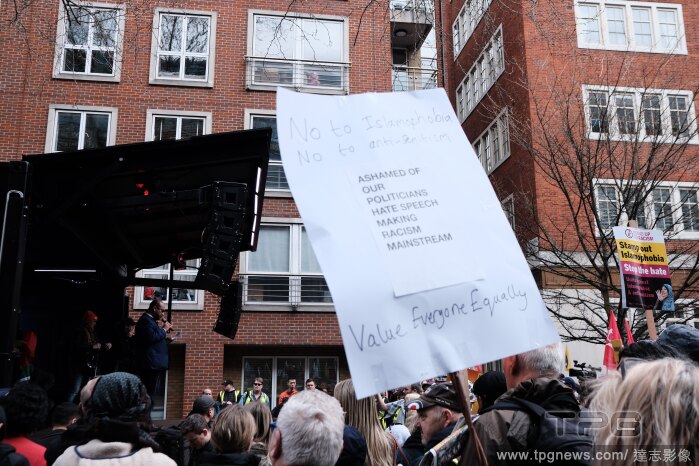 No to Islamophobia
No to anti-semitism
ASHAMED OF
OUR
POLITICIANS
HATE SPEECH
MAKING
RACISM
MAINSTREAM
Value Everyone Equally
Stamp out
Islamophobia
Stop the hate
TPG
www.tpgnews.com | 達志影像
www.tpgnews.com | 達志影像